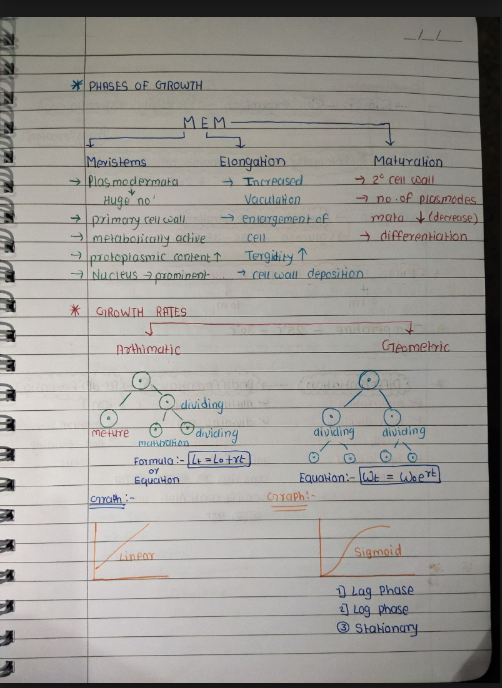 _/_/_
* PHASES OF GROWTH
MEM
Meristems
→ Plasmodermata
↓
Huge no'
→ primary cell wall
→ metabolically active
→ protoplasmic content ↑
→ Nucleus → prominent
Elongation
→ Increased
Vaculation
→ enlargement of
cell
Tergidity ↑
→ cell wall deposition
Maturation
→ 2° cell wall
→ no. of plasmodes
mata ↓ (decrease)
→ differentiation
* GROWTH RATES
Arthimatic
dividing
meture
maturation
dividing
Formula:- Lt = Lo + rt
or
Equation
Graph:-
Linear
Geometric
dividing dividing
Equation:- Wt = Woe^rt
Graph:-
Sigmoid
1] Lag Phase
2] Log phase
③ Stationary